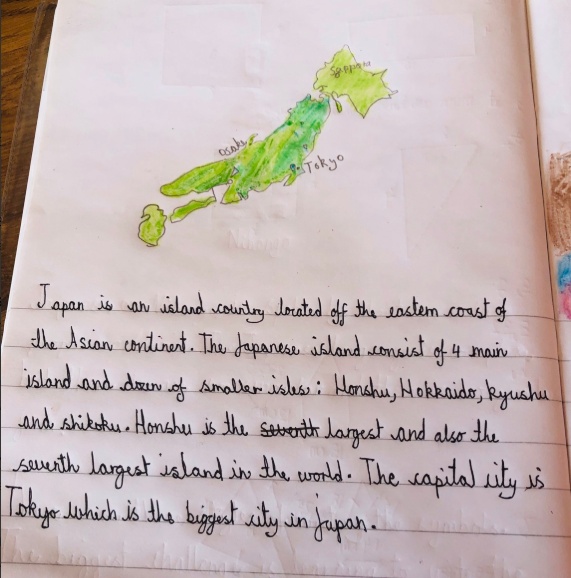 Sapporo
Osaka
Tokyo
Japan is an island country located off the eastern coast of
the Asian continent. The Japanese island consist of 4 main
island and dozen of smaller isles : Honshu, Hokkaido, kyushu
and shikoku. Honshu is the seventh largest and also the
seventh largest island in the world. The capital city is
Tokyo which is the biggest city in japan.